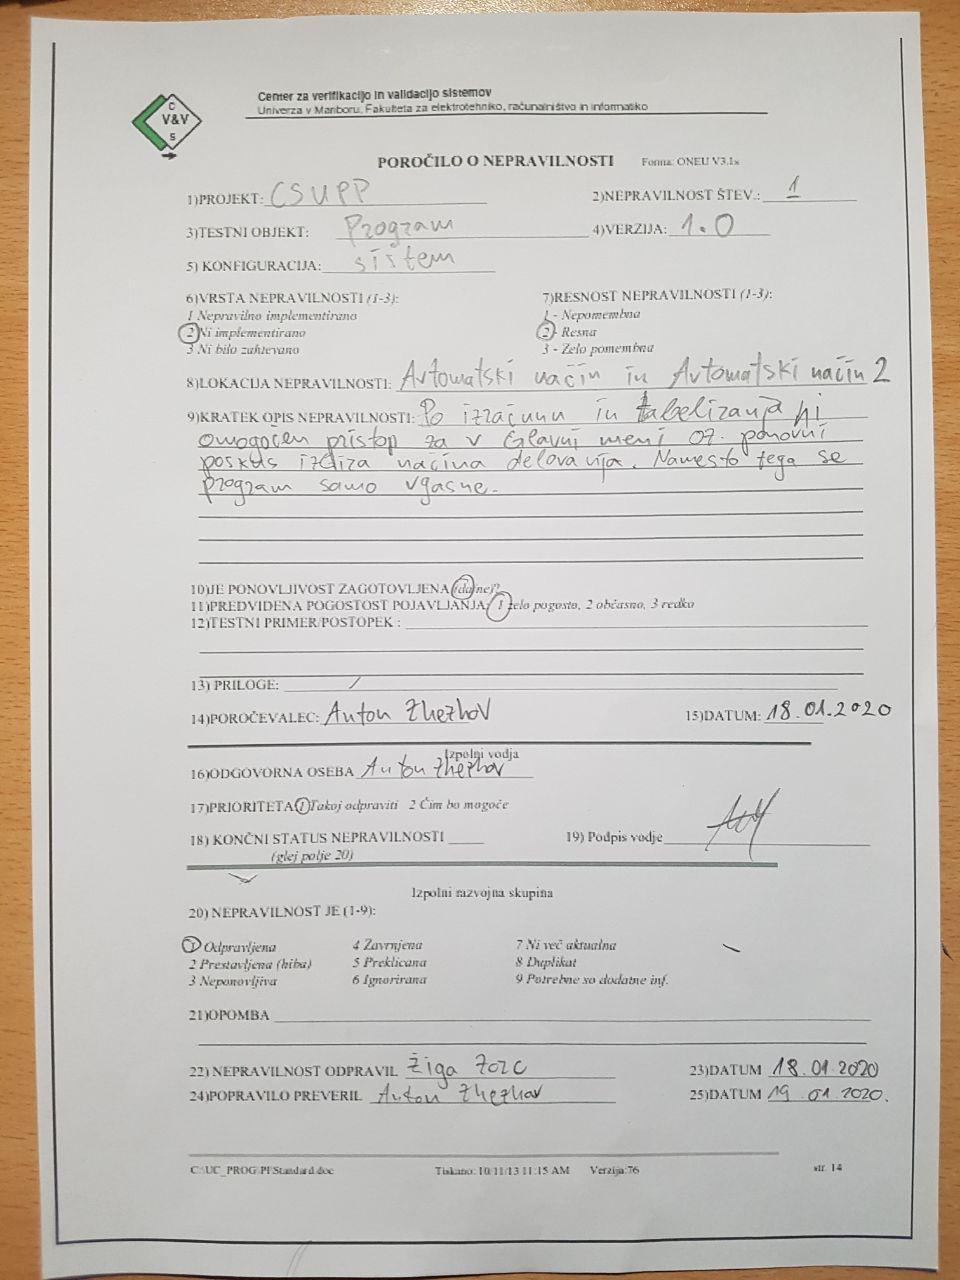 C
V&V
S
Center za verifikacijo in validacijo sistemov
Univerza v Mariboru, Fakulteta za elektrotehniko, računalništvo in informatiko
POROČILO O NEPRAVILNOSTI Forma: ONEU V3.1x
1)PROJEKT: CSUPP 2)NEPRAVILNOST ŠTEV.: 1
3)TESTNI OBJEKT: Program 4)VERZIJA: 1.0
5) KONFIGURACIJA: sistem
6)VRSTA NEPRAVILNOSTI (1-3): 7)RESNOST NEPRAVILNOSTI (1-3):
1 Nepravilno implementirano 1 - Nepomembna
2 Ni implementirano 2 - Resna
3 Ni bilo zahtevano 3 - Zelo pomembna
8)LOKACIJA NEPRAVILNOSTI: Avtomatski način in Avtomatski način 2
9)KRATEK OPIS NEPRAVILNOSTI: Po izračunu in tabeliranja ni
omogočen pristop za v Glavni meni oz. ponovni
poskus izbira načina delovanja. Namesto tega se
program samo vgasne.
10)JE PONOVLJIVOST ZAGOTOVLJENA (da/ne)?
11)PREDVIDENA POGOSTOST POJAVLJANJA: 1 zelo pogosto, 2 občasno, 3 redko
12)TESTNI PRIMER/POSTOPEK :
13) PRILOGE: /
14)POROČEVALEC: Anton Zhezhov 15)DATUM: 18.01.2020
Izpolni vodja
16)ODGOVORNA OSEBA Anton Zhezhov
17)PRIORITETA 1 Takoj odpraviti 2 Čim bo mogoče
18) KONČNI STATUS NEPRAVILNOSTI 19) Podpis vodje
(glej polje 20)
Izpolni razvojna skupina
20) NEPRAVILNOST JE (1-9):
1 Odpravljena 4 Zavrnjena 7 Ni več aktualna
2 Prestavljena (hiba) 5 Preklicana 8 Duplikat
3 Neponovljiva 6 Ignorirana 9 Potrebne so dodatne inf.
21)OPOMBA
22) NEPRAVILNOST ODPRAVIL Žiga Zorc 23)DATUM 18.01.2020
24)POPRAVILO PREVERIL Anton Zhezhov 25)DATUM 19.01.2020.
C:\UC_PROG\PI\Standard.doc Tiskano: 10/11/13 11:15 AM Verzija:76 str. 14